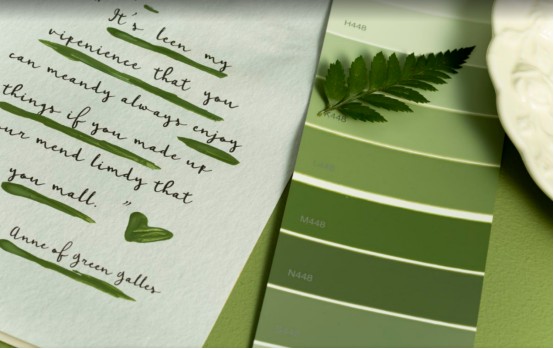 It's leen my
vipenience that you
can meandy always enjoy
things if you made up
our mend limdy that
you mall. "
Anne of green galles
H448
K448
M448
N448